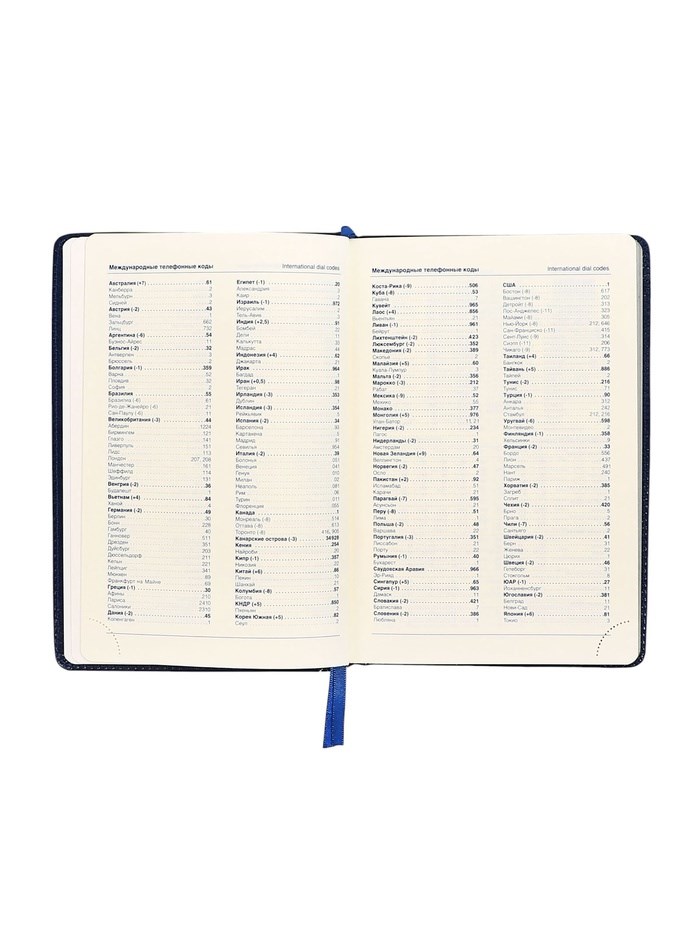 Международные телефонные коды
International dial codes
Австралия (+7) .61
Канберра 2
Мельбурн 3
Сидней 2
Австрия (-2) .43
Вена
Зальцбург 662
Линц 732
Аргентина (-6) .54
Буэнос-Айрес 11
Бельгия (-2) .32
Антверпен 3
Брюссель 2
Болгария (-1) .359
Варна 52
Пловдив 32
София 2
Бразилия .55
Бразилиа (-6) 61
Рио-де-Жанейро (-6) 21
Сан-Паулу (-6) 11
Великобритания (-3) .44
Абердин 1224
Бирмингем 121
Глазго 141
Ливерпуль 151
Лидс 113
Лондон 207, 208
Манчестер 161
Шеффилд 114
Эдинбург 131
Венгрия (-2) .36
Будапешт 1
Вьетнам (+4) .84
Ханой 4
Германия (-2) .49
Берлин 30
Бонн 228
Гамбург 40
Ганновер 511
Дрезден 351
Дуйсбург 203
Дюссельдорф 211
Кельн 221
Лейпциг 341
Мюнхен 89
Франкфурт на Майне 69
Греция (-1) .30
Афины 210
Лариса 2410
Салоники 2310
Дания (-2) .45
Копенгаген
Египет (-1) .20
Александрия
Каир 2
Израиль (-1) .972
Иерусалим 2
Тель-Авив 3
Индия (+2,5) .91
Бомбей 22
Дели 11
Калькутта 33
Мадрас
Индонезия (+4) .62
Джакарта 21
Ирак .964
Багдад 1
Иран (+0,5) .98
Тегеран 21
Ирландия (-3) .353
Дублин 1
Исландия (-3) .354
Рейкьявик
Испания (-2) .34
Барселона 93
Картахена
Мадрид 91
Севилья 954
Италия (-2) .39
Болонья 051
Венеция 041
Генуя 010
Милан 02
Неаполь 081
Рим 06
Турин 011
Флоренция 055
Канада .1
Монреаль (-8) 514
Оттава (-8) 613
Торонто (-8) 416, 905
Канарские острова (-3) 34928
Кения .254
Найроби 20
Кипр (-1) .357
Никозия 22
Китай (+5) .86
Пекин 10
Шанхай 21
Колумбия (-8) .57
Богота 1
КНДР (+5) .850
Пхеньян 2
Корея Южная (+5) .82
Сеул 2
Международные телефонные коды
International dial codes
Коста-Рика (-9) .506
Куба (-8) .53
Гавана 7
Кувейт .965
Лаос (+4) .856
Вьентьян 21
Ливан (-1) .961
Бейрут 1
Лихтенштейн (-2) .423
Люксембург (-2) .352
Македония (-2) .389
Скопье 2
Малайзия (+5) .60
Куала-Лумпур 3
Мальта (-2) .356
Марокко (-3) .212
Рабат 37
Мексика (-9) .52
Мехико 55
Монако .377
Монголия (+5) .976
Улан-Батор 11, 21
Нигерия (-2) .234
Лагос 1
Нидерланды (-2) .31
Амстердам 20
Новая Зеландия (+9) .64
Веллингтон 4
Норвегия (-2) .47
Осло 2
Пакистан (+2) .92
Исламабад 51
Карачи 21
Парагвай (-7) .595
Асунсьон 21
Перу (-8) .51
Лима 1
Польша (-2) .48
Варшава 22
Португалия (-3) .351
Лиссабон 21
Порту 22
Румыния (-1) .40
Бухарест 1
Саудовская Аравия .966
Эр-Рияд 1
Сингапур (+5) .65
Сирия (-1) .963
Дамаск 11
Словакия (-2) .421
Братислава 2
Словения (-2) .386
Любляна 1
США .1
Бостон (-8) 617
Вашингтон (-8) 202
Детройт (-8) 313
Лос-Анджелес (-11) 323
Майами (-8) 305
Нью-Йорк (-8) 212, 646
Сан-Франциско (-11) 415
Сент-Луис (-9) 314
Сиэтл (-11) 206
Чикаго (-9) 312, 773
Таиланд (+4) .66
Бангкок 2
Тайвань (+5) .886
Тайпей 2
Тунис (-2) .216
Тунис 71
Турция (-1) .90
Анкара 312
Анталья 242
Стамбул 212, 216
Уругвай (-6) .598
Монтевидео 2
Финляндия (-1) .358
Хельсинки 9
Франция (-2) .33
Бордо 556
Лион 437
Марсель 491
Нант 240
Париж 1
Хорватия (-2) .385
Загреб 1
Сплит 21
Чехия (-2) .420
Брно 5
Прага 2
Чили (-7) .56
Сантьяго 2
Швейцария (-2) .41
Берн 31
Женева 22
Цюрих 1
Швеция (-2) .46
Гетеборг 31
Стокгольм 8
ЮАР (-1) .27
Иоханнесбург 11
Югославия (-2) .381
Белград 11
Нови-Сад 21
Япония (+6) .81
Токио 3